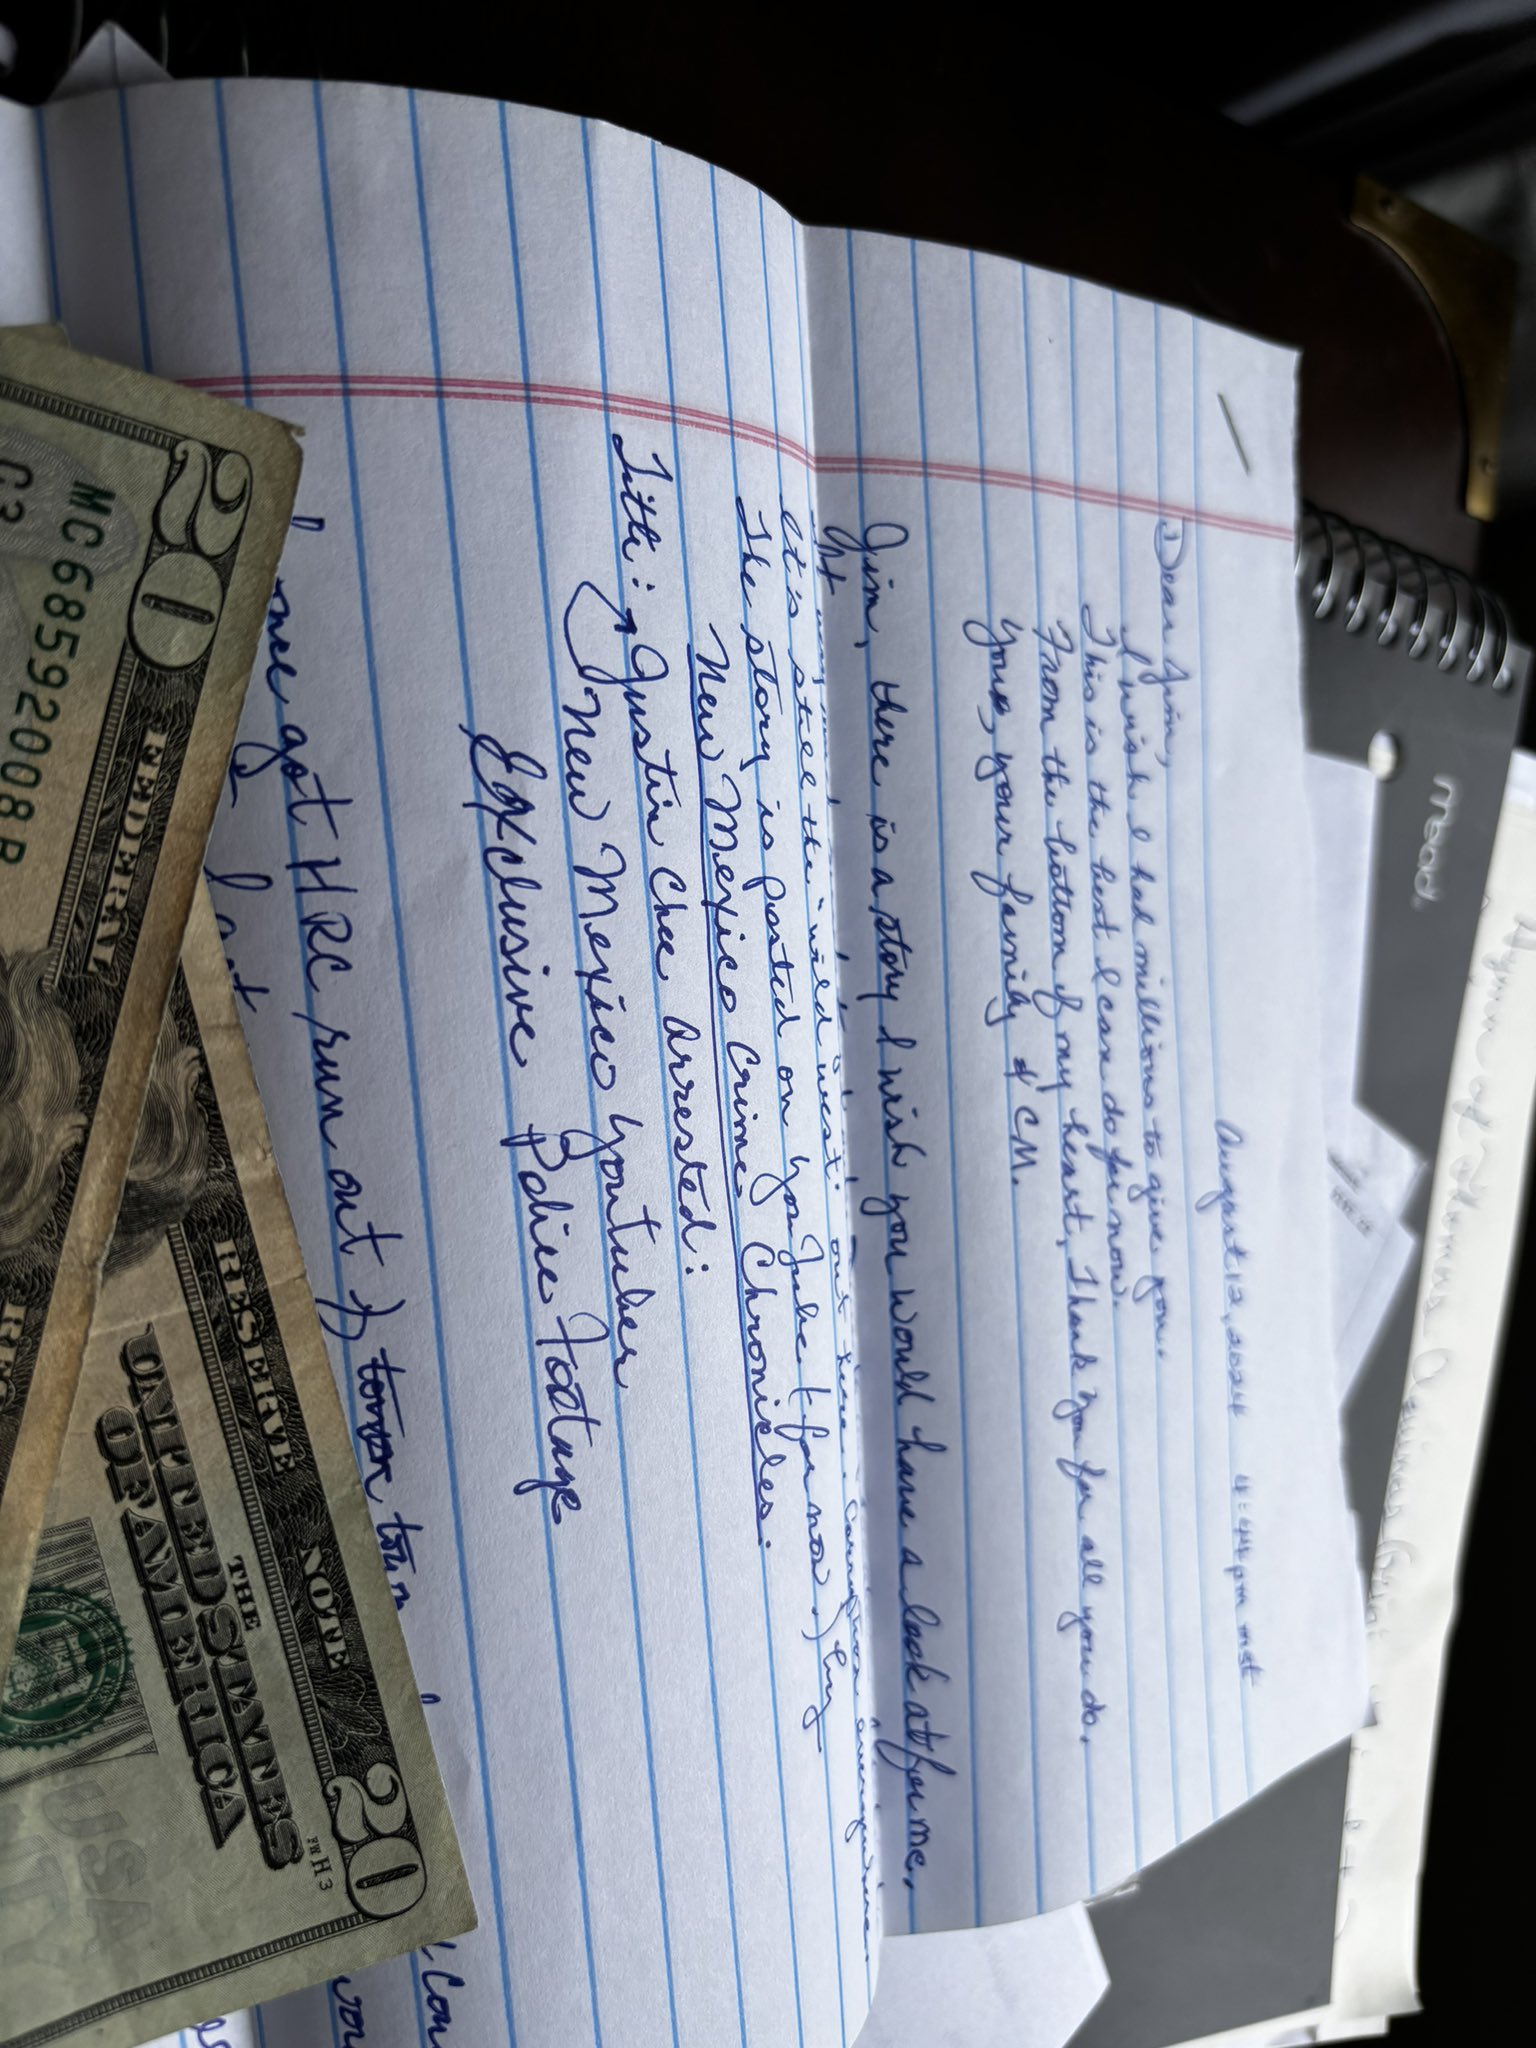 August 12, 2024 4:44 pm mst
Dear Jim,
I wish I had millions to give you.
This is the best I can do for now.
From the bottom of my heart, Thank you for all you do,
Yours, your family & CM.
Jim, there is a story I wish you would have a look at for me.
It's still the "wild west" out here. Corruption
The story is posted on YouTube (for now) by
New Mexico Crime Chronicles.
Title: Justin Chee Arrested:
New Mexico Youtuber
Exclusive Police Footage
got HRC run out of town
mead
20
FEDERAL
RESERVE NOTE
THE
UNITED STATES
OF AMERICA
20
FW H 3
USA
MC6859208B